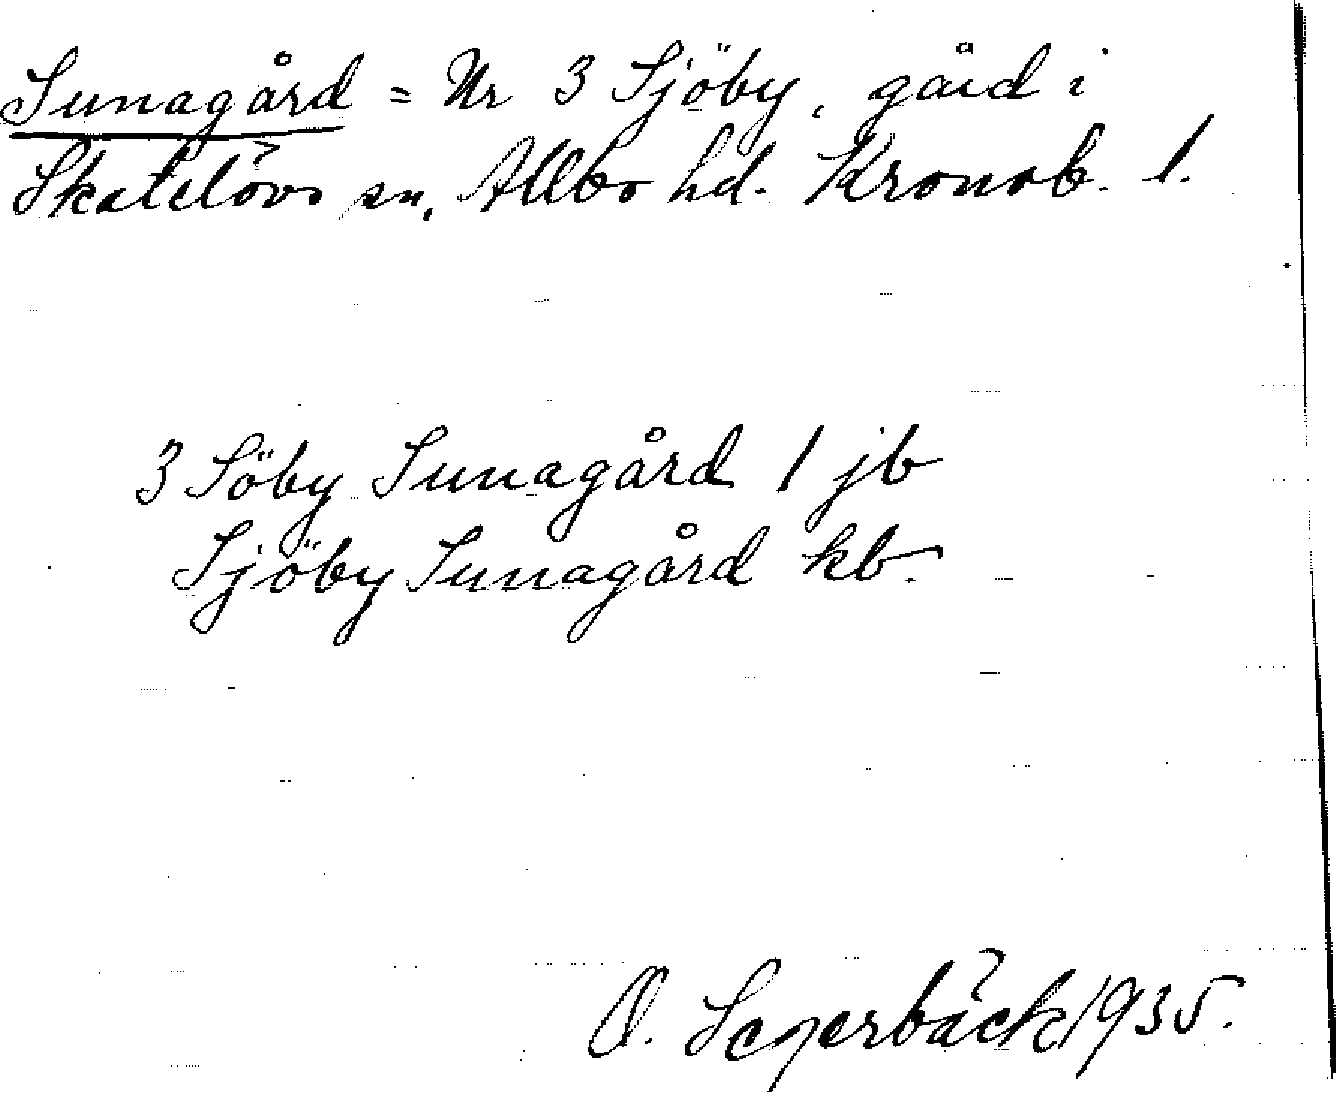 Sunagård = Nr 3 Sjöby, gård i
Skatelövs sn, Allbo hd. Kronob. l.
3 Söby Sunagård 1 jb
Sjöby Sunagård kb.
O. Segerbäck 1935.